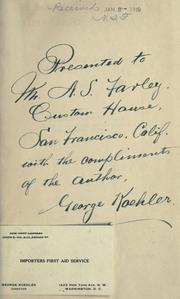 Received JAN 8
Presented to
Mr. N. S. Farley.
Custom House,
San Francisco. Calif.
with the compliments
of the author,
George Koehler.
IMPORTERS FIRST AID SERVICE
GEORGE KOEHLER
DIRECTOR
WASHINGTON, D. C.